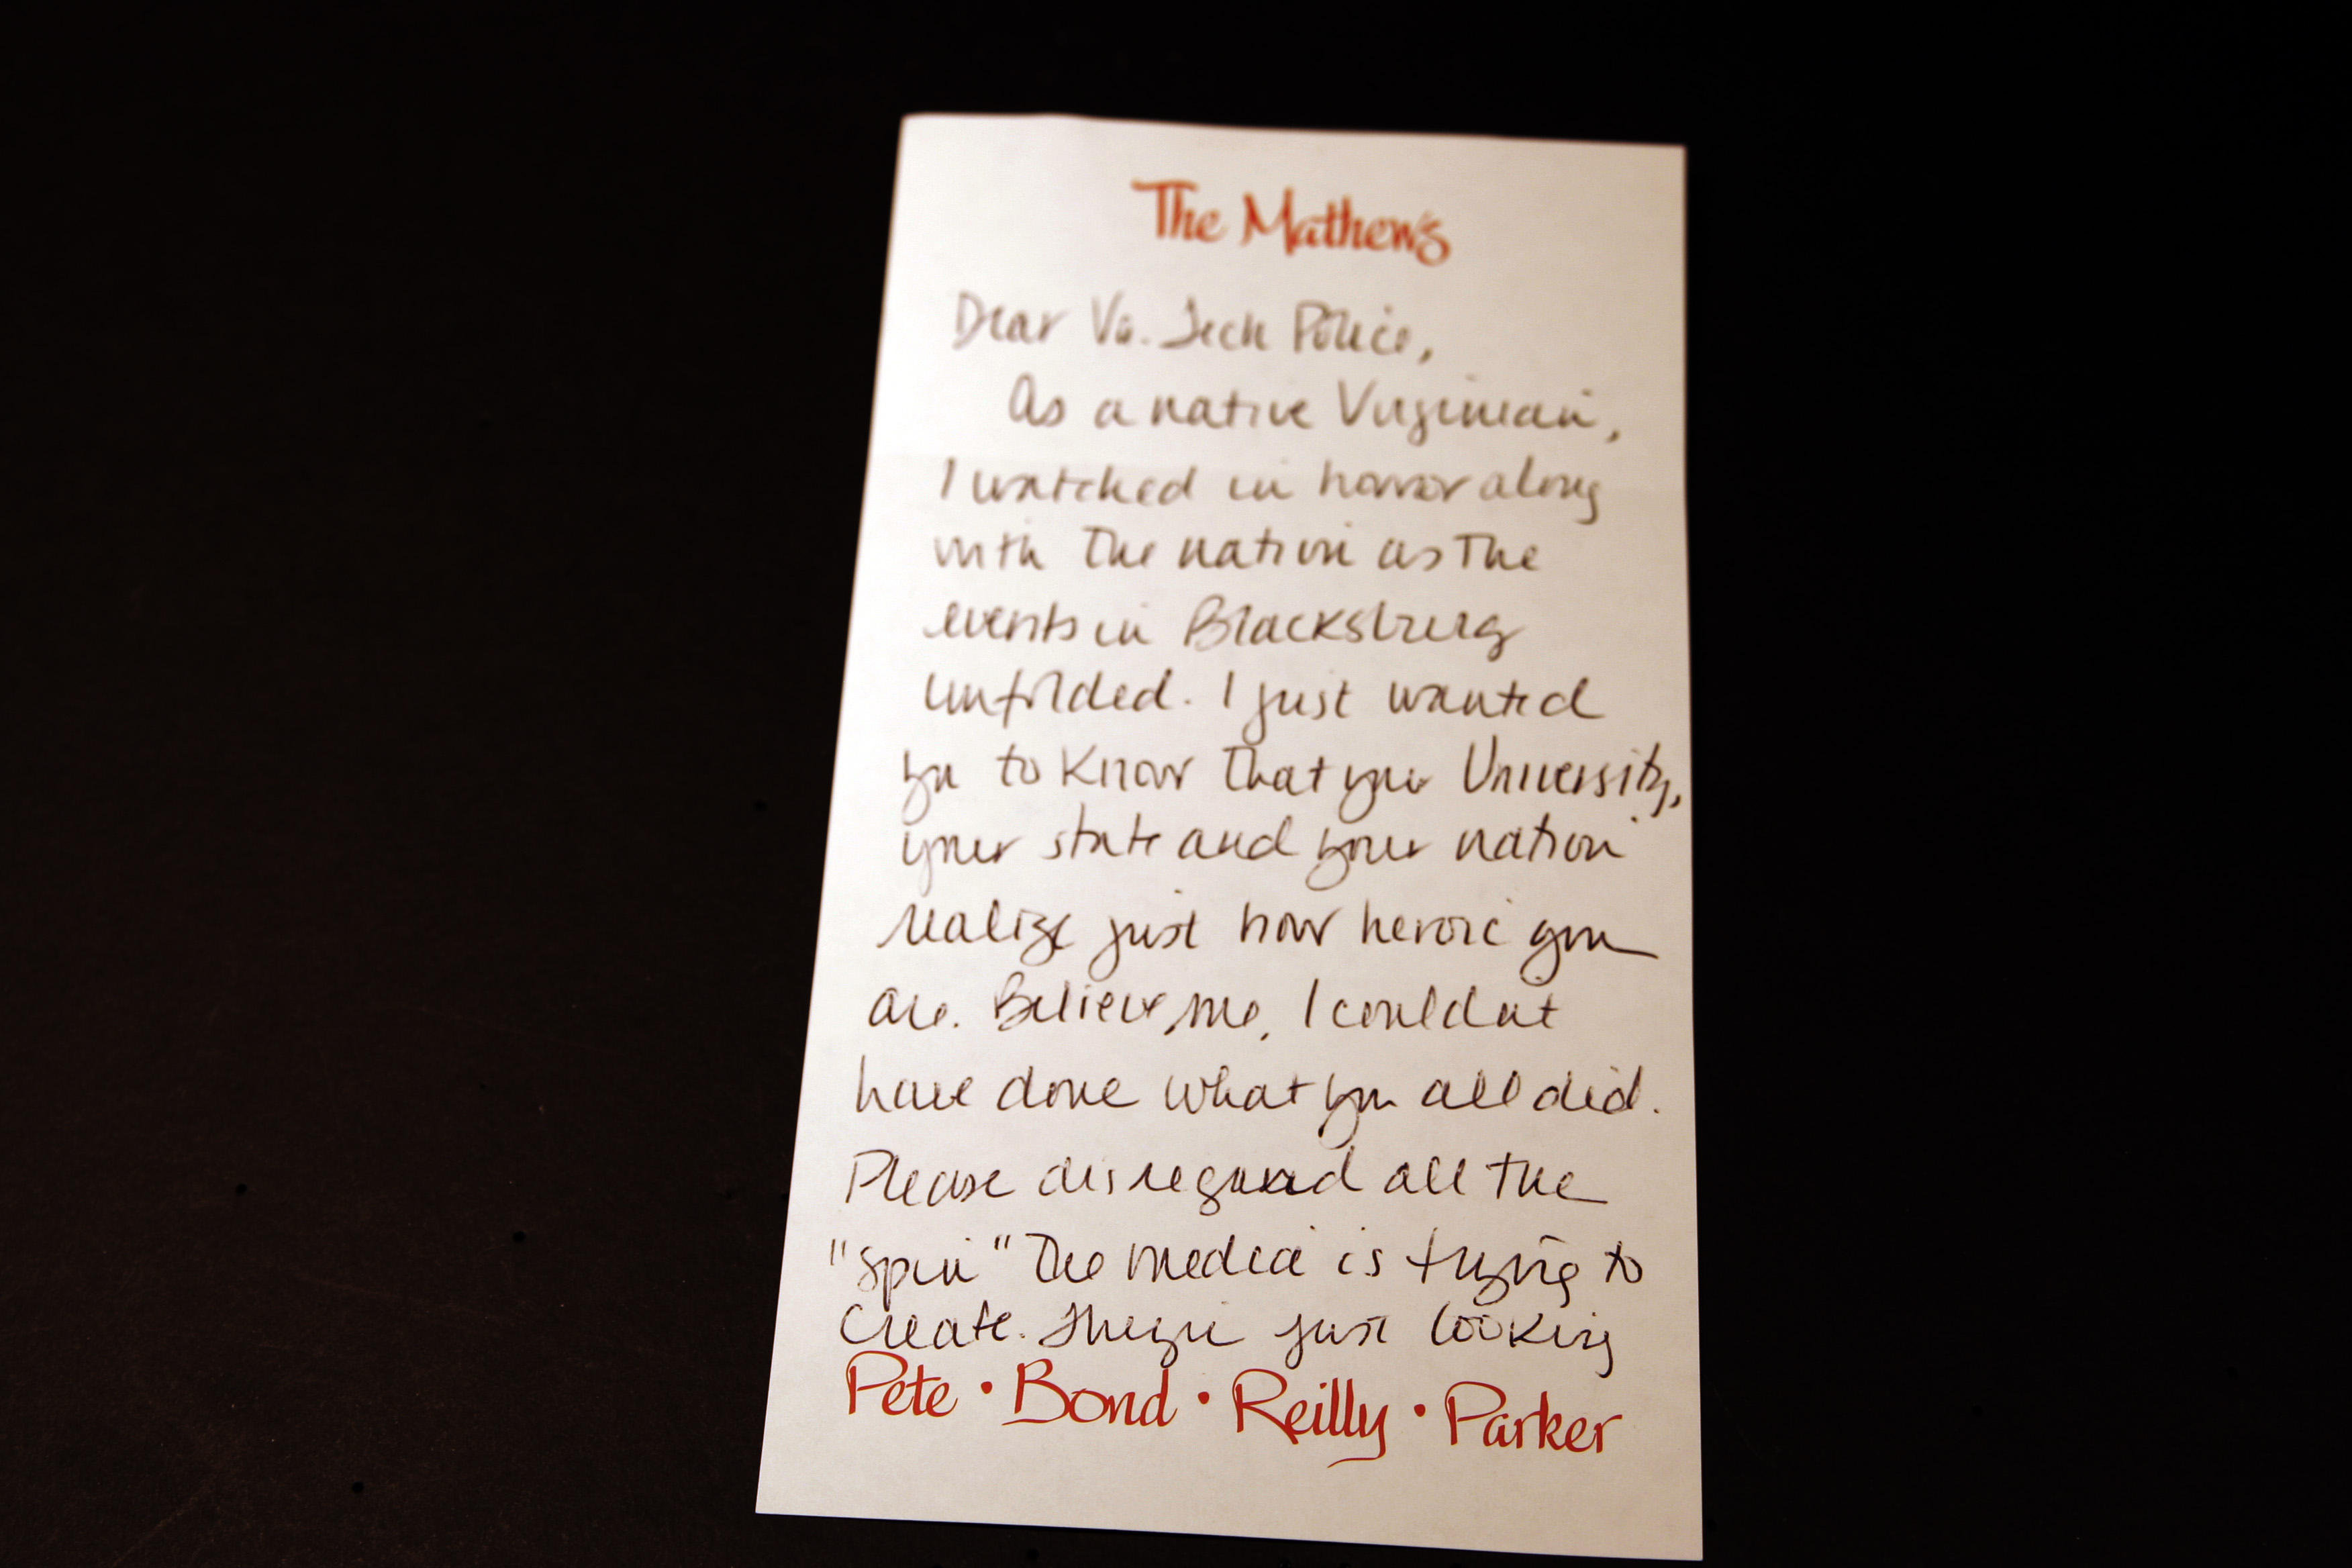 The Mathews
Dear Va. Tech Police,
As a native Virginian,
I watched in horror along
with the nation as the
events in Blacksburg
unfolded. I just wanted
you to know that your University,
your state and your nation
realize just how heroic you
are. Believe me, I couldnt
have done what you all did.
Please disregard all the
"spin" the media is trying to
create. They're just looking
Pete • Bond • Reilly • Parker